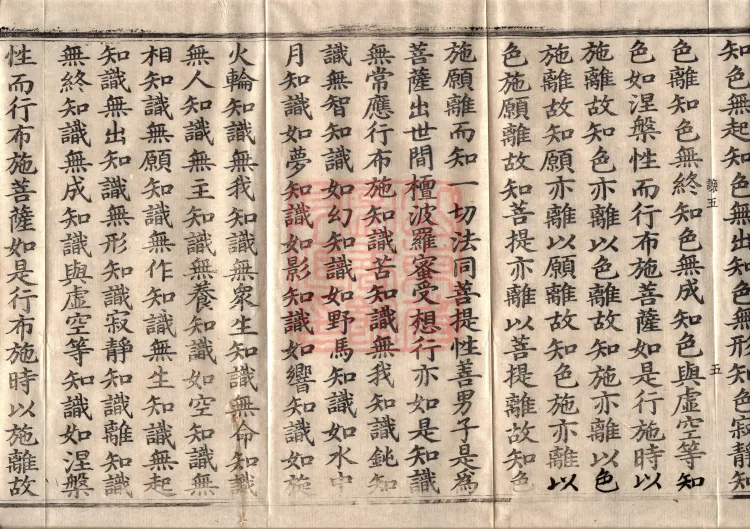 知色無起知色無出知色無形知色寂靜知
色離知色無終知色無成知色與虛空等知
色如涅槃性而行布施菩薩如是行施時以
施離故知色亦離以色離故知施亦離以色
施離故知願亦離以願離故知色施亦離以
色施願離故知菩提亦離以菩提離故知色
施願離而知一切法同菩提性善男子是為
菩薩出世間檀波羅蜜受想行亦如是知識
無常應行布施知識苦知識無我知識鈍知
識無智知識如幻知識如野馬知識如水中
月知識如夢知識如影知識如響知識如旋
火輪知識無我知識無眾生知識無命知識
無人知識無主知識無養知識如空知識無
相知識無願知識無作知識無生知識無起
知識無出知識無形知識寂靜知識離知識
無終知識無成知識與虛空等知識如涅槃
性而行布施菩薩如是行布施時以施離故
五
五